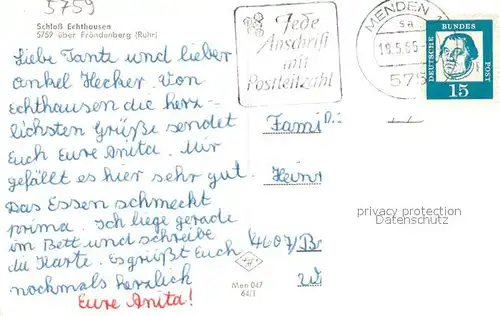 5759
Schloß Echthausen
5759 über Fröndenberg (Ruhr)
Liebe Tante und lieber
onkel Hecker. Von
Echthausen die herz-
lichsten Grüße sendet
Euch Eure Anita. Mir
gefällt es hier sehr gut.
Das Essen schmeckt
prima. Ich liege gerade
im Bett und schreibe
die Karte. Es grüßt Euch
nochmals herzlich
Eure Anita!
Jede
Anschrift
mit
Postleitzahl
MENDEN 1
sa
575
DEUTSCHE BUNDESPOST
15
Fami
Heinr
4607/B
Men 047
64/1
privacy protection
Datenschutz